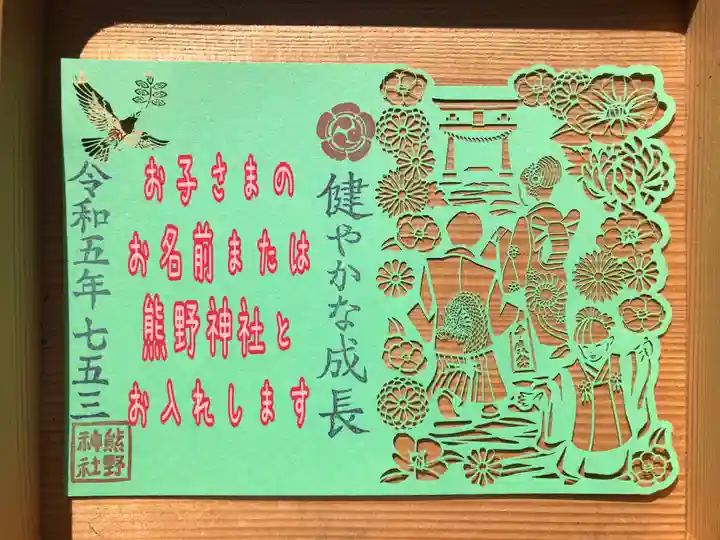 健やかな成長
お子さまの
お名前または
熊野神社と
お入れします
令和五年七五三
熊野
神社